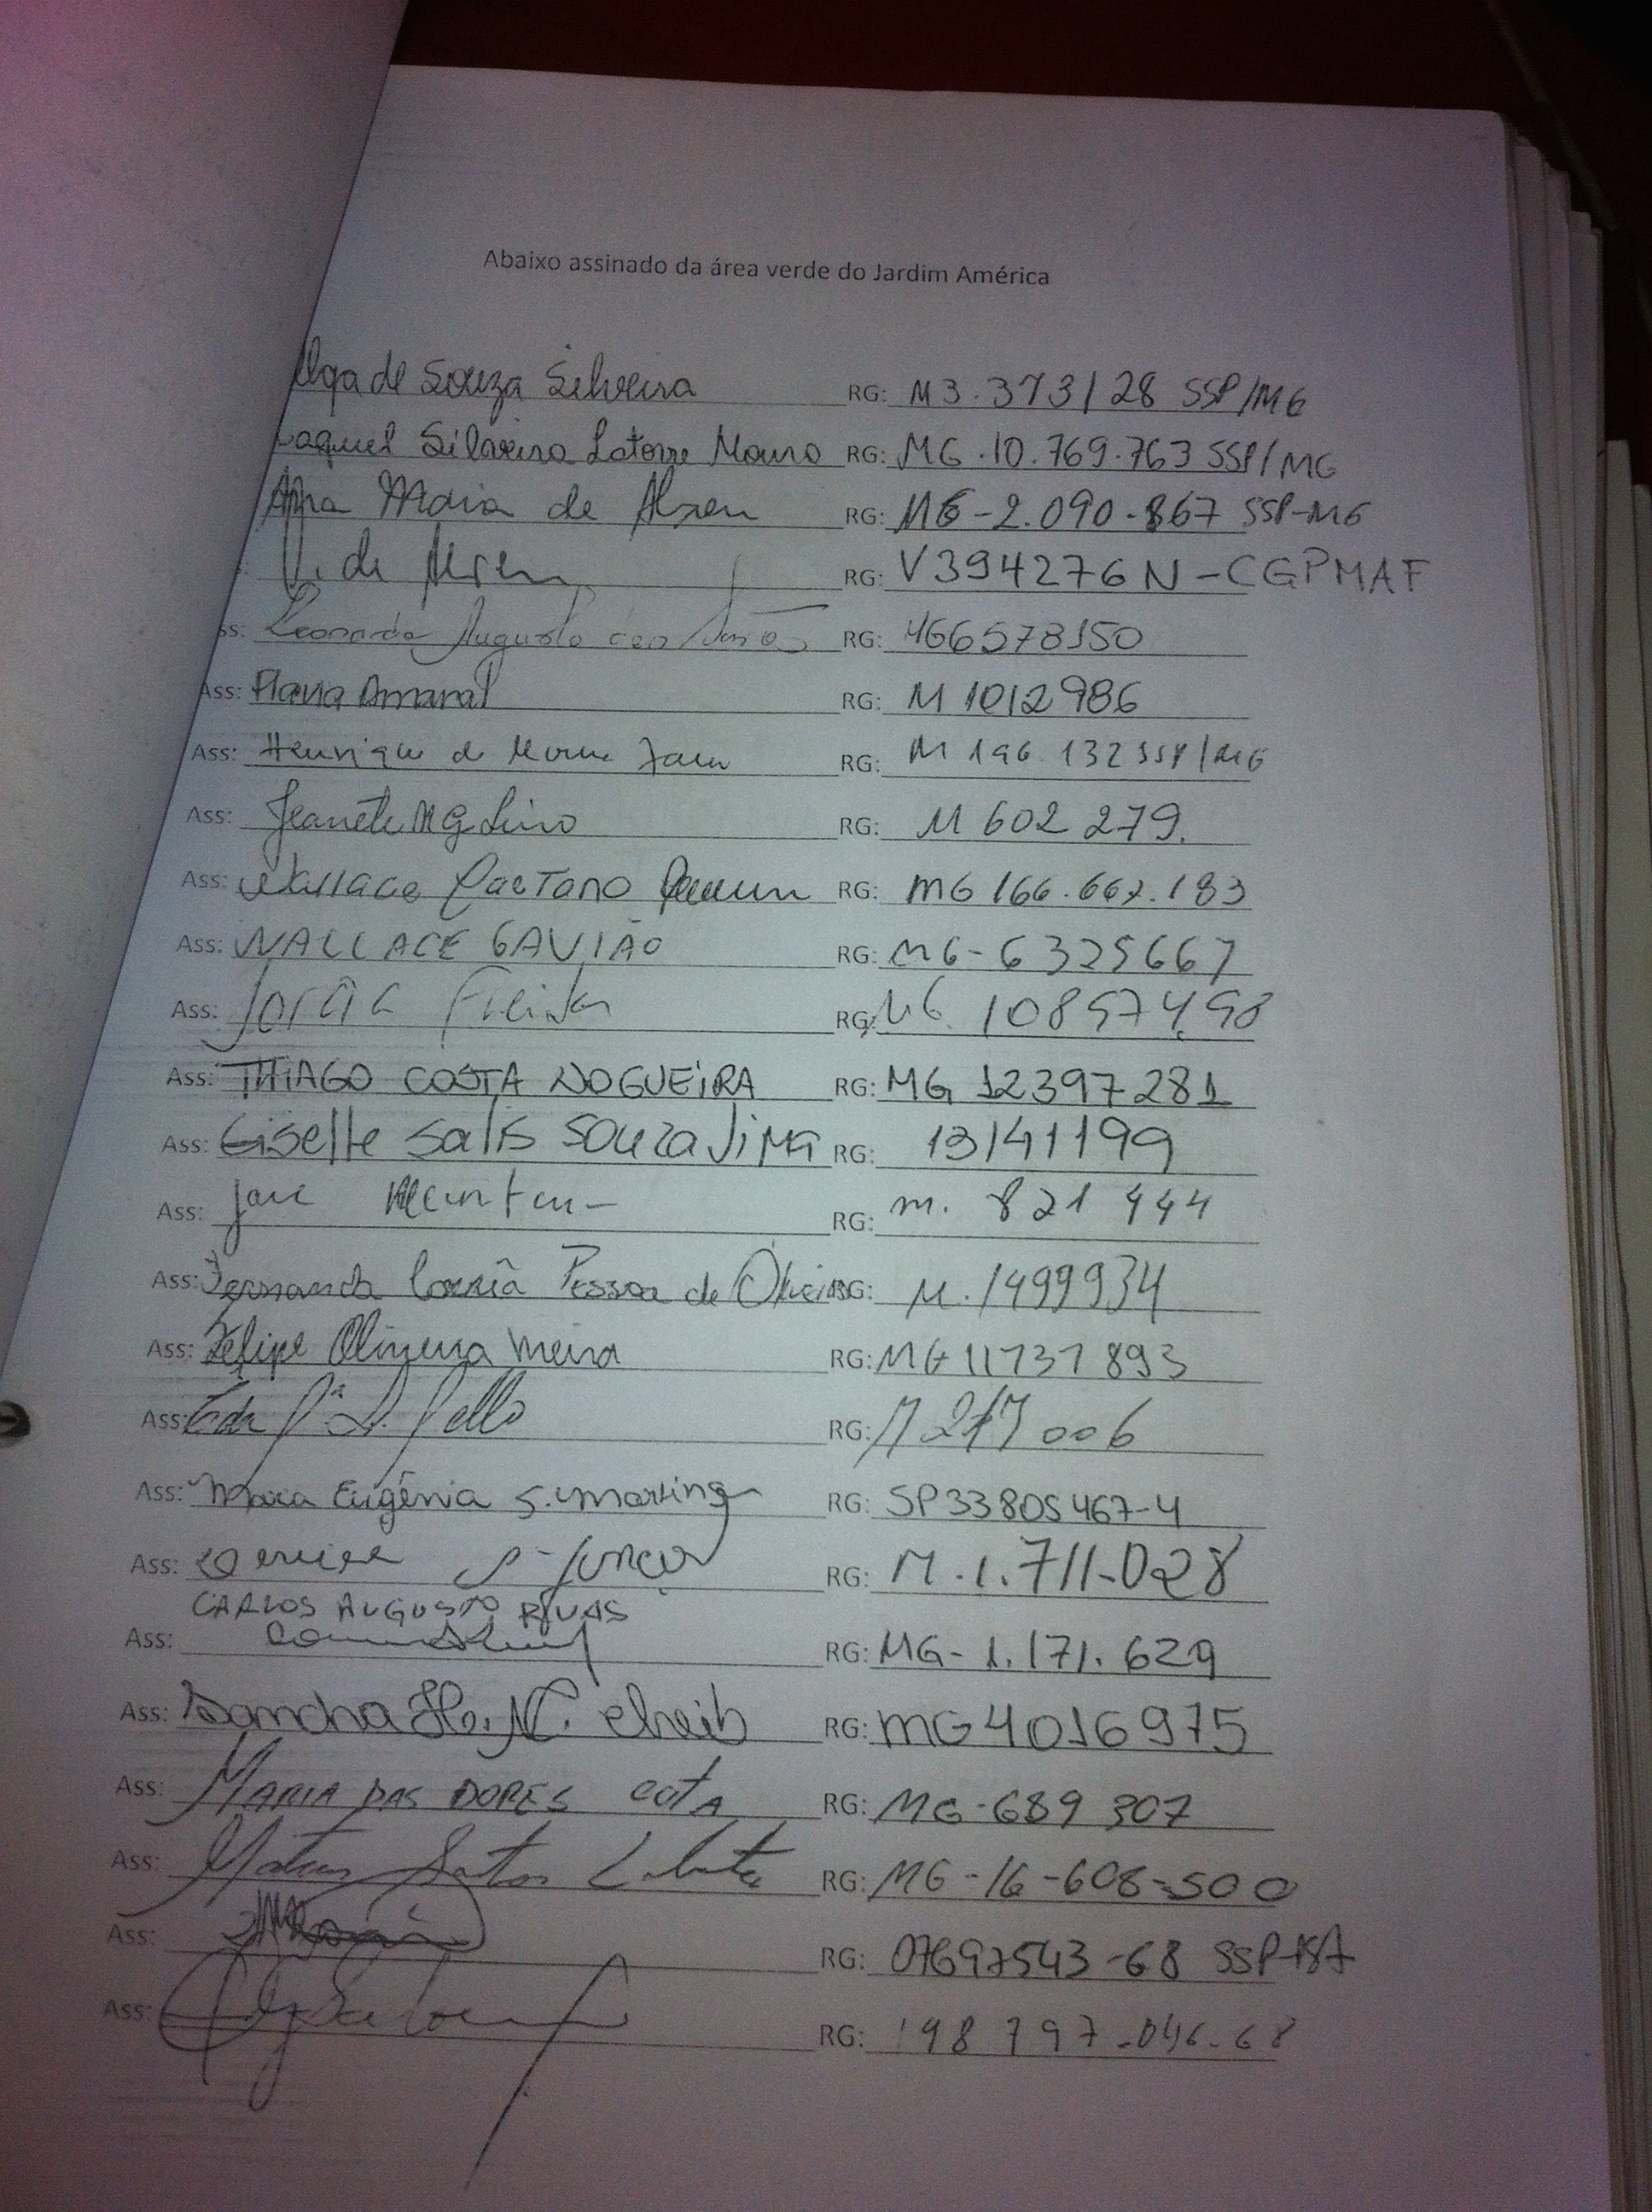 Abaixo assinado da área verde do Jardim América
Olga de Souza Silveira RG: M3.373128 SSP/MG
Raquel Silveira Latorre Mouro RG: MG.10.769.763 SSP/MG
Anna Maria de RG: MG-2.090.867 SSP-MG
V. de RG: V394276N-CGPMAF
ss: Leonardo Augusto dos Santos RG: 466578150
Ass: Flavia Amaral RG: M 1012986
Ass: Henrique de RG: M 196.132 SSP/MG
Ass: Jeanete RG: M 602 279.
Ass: Wallace Caetano RG: MG 166.667.183
Ass: WALLACE GAVIÃO RG: MG-6325667
Ass: Freitas RG: MG
Ass: THIAGO COSTA NOGUEIRA RG: MG 12397281
Ass: Giselle Salis Souza Lima RG: 13141199
Ass: José RG: m. 821 444
Ass: Fernanda Corrêa Pessoa de Oliveira RG: M.1499934
Ass: Felipe Oliveira Meira RG: MG 11737893
Ass: RG: 006
Ass: Maria Eugênia S. Martins RG: SP33805467-4
Ass: Denise RG: M.1.711-028
CARLOS AUGUSTO RIVAS
Ass: RG: MG-1.171.629
Ass: Sancha H. N. Cheib RG: MG4016975
Ass: MARIA DAS DORES COTA RG: MG-689 307
Ass: Mateus Santos RG: MG-16-608-500
Ass: RG: 07697543-68 SSP-BA
Ass: RG: 198 797-046-68